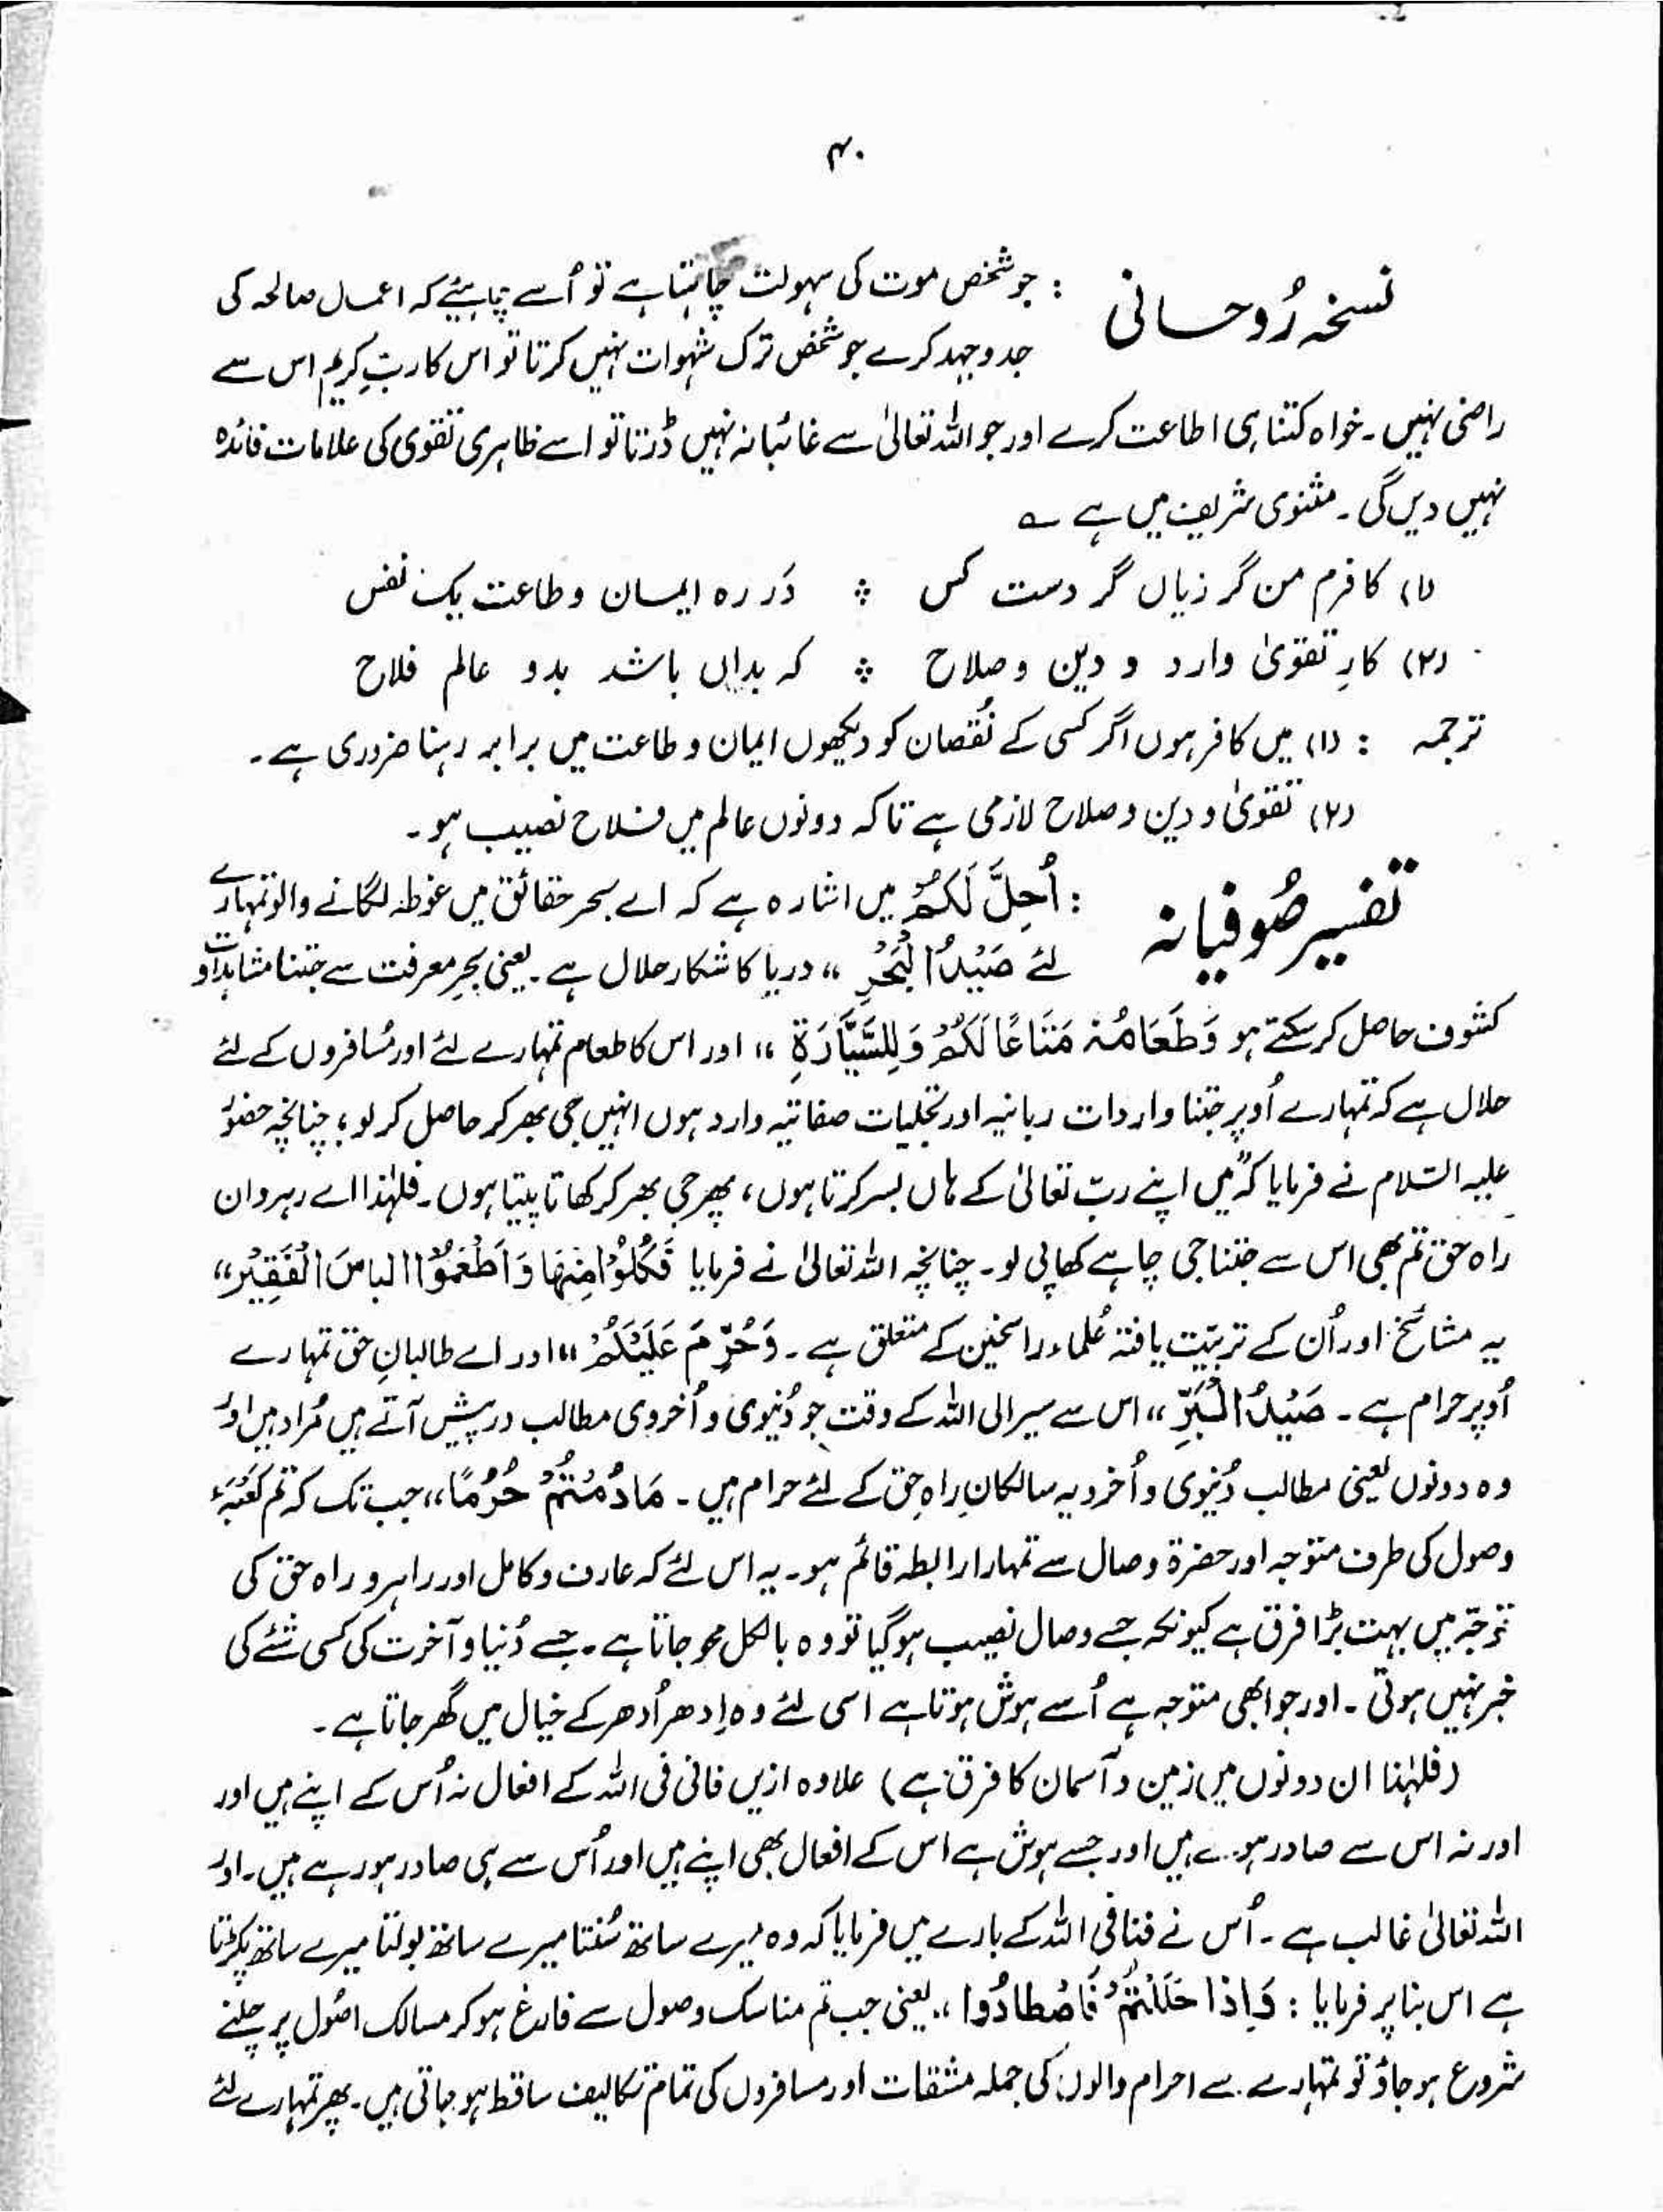 ۴۰
نسخہ رُوحانی : جو شخص موت کی سہولت چاہتا ہے تو اُسے چاہیئے کہ اعمال صالحہ کی
جدوجہد کرے جو شخص ترک شہوات نہیں کرتا تو اس کا ربِّ کریم اس سے
راضی نہیں ۔ خواہ کتنا ہی اطاعت کرے اور جو اللہ تعالیٰ سے غائبانہ نہیں ڈرتا تو اسے ظاہری تقوی کی علامات فائدہ
نہیں دیں گی ۔ مثنوی شریف میں ہے ؎
(۱) کافرم من گر زیاں گر دست کس ∴ دَر رہ ایمان و طاعت یک نفس
(۲) کارِ تقویٰ وارد و دین و صلاح ∴ کہ بداں باشد بدو عالم فلاح
ترجمہ : (۱) میں کافر ہوں اگر کسی کے نُقصان کو دیکھوں ایمان و طاعت میں برابر رہنا ضروری ہے ۔
(۲) تقویٰ و دین و صلاح لازمی ہے تاکہ دونوں عالم میں فلاح نصیب ہو ۔
تفسیر صُوفیانہ : اُحِلَّ لَکُمْ میں اشارہ ہے کہ اے بحر حقائق میں غوطہ لگانے والو تمہارے
لئے صَیْدُ الْبَحْرِ ،، دریا کا شکار حلال ہے ۔ یعنی بحرِ معرفت سے جتنا مشاہدات و
کشوف حاصل کر سکتے ہو وَطَعَامُہٗ مَتَاعًا لَکُمْ وَلِلسَّیَّارَۃِ ،، اور اس کا طعام تمہارے لئے اور مُسافروں کے لئے
حلال ہے کہ تمہارے اُوپر جتنا واردات ربانیہ اور تجلیات صفاتیہ وارد ہوں انہیں جی بھر کر حاصل کر لو ؛ چنانچہ حضورُ
علیہ السّلام نے فرمایا کہ ”میں اپنے ربّ تعالیٰ کے ہاں بسر کرتا ہوں ، پھر جی بھر کر کھاتا پیتا ہوں ۔ فلہٰذا اے رہروان
راہ حق تم بھی اس سے جتنا جی چاہے کھا پی لو ۔ چنانچہ اللہ تعالیٰ نے فرمایا فَکُلُوْا مِنْہَا وَ اَطْعِمُوْا الباسَ الْفَقِیْرَ ،،
یہ مشائخ اور اُن کے تربیّت یافتہ عُلماء راسخین کے متعلق ہے ۔ وَحُرِّمَ عَلَیْکُمْ ،، اور اے طالبانِ حق تمہارے
اُوپر حرام ہے ۔ صَیْدُ الْبَرِّ ،، اس سے سیر الی اللہ کے وقت جو دُنیوی و اُخروی مطالب درپیش آتے ہیں مُراد ہیں اور
وہ دونوں یعنی مطالب دُنیوی و اُخرویہ سالکانِ راہِ حق کے لئے حرام ہیں ۔ مَا دُمْتُمْ حُرُمًا ،، جب تک کہ تم کَعْبَۂ
وصول کی طرف متوجہ اور حضرۃ وصال سے تمہارا رابطہ قائم ہو ۔ یہ اس لئے کہ عارف و کامل اور راہرو راہ حق کی
توجّہ میں بہت بڑا فرق ہے کیونکہ جسے وصال نصیب ہو گیا تو وہ بالکل محو جاتا ہے ۔ جسے دُنیا و آخرت کی کسی شئے کی
خبر نہیں ہوتی ۔ اور جو ابھی متوجہ ہے اُسے ہوش ہوتا ہے اسی لئے وہ اِدھر اُدھر کے خیال میں گھر جاتا ہے ۔
(فلہٰذا ان دونوں میں زمین و آسمان کا فرق ہے) علاوہ ازیں فانی فی اللہ کے افعال نہ اُس کے اپنے ہیں اور
اور نہ اس سے صادر ہوئے ہیں اور جسے ہوش ہے اس کے افعال بھی اپنے ہیں اور اُس سے ہی صادر ہو رہے ہیں ۔ اور
اللہ تعالیٰ غالب ہے ۔ اُس نے فنا فی اللہ کے بارے میں فرمایا کہ وہ میرے ساتھ سُنتا میرے ساتھ بولتا میرے ساتھ پکڑتا
ہے اس بنا پر فرمایا : وَاِذا حَلَلْتُمْ فَاصْطادُوا ،، یعنی جب تم مناسک وصول سے فارغ ہو کر مسالک اصُول پر چلنے
شروع ہو جاؤ تو تمہارے سے احرام والوں کی جملہ مشقات اور مسافروں کی تمام تکالیف ساقط ہو جاتی ہیں ۔ پھر تمہارے لئے